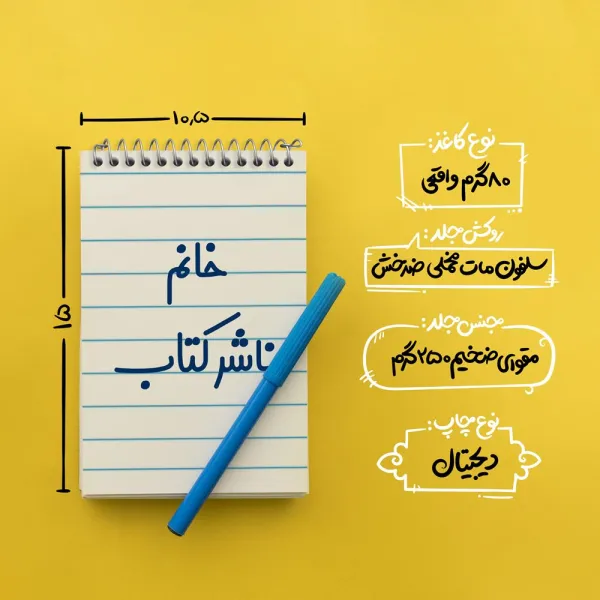 ۱۰٫۵
۱۵
خانم
ناشر کتاب
نوع کاغذ:
۸۰گرم واقعی
روکش جلد:
سلفون مات مخملی ضدخش
جنس جلد:
مقوای ضخیم ۲۵۰ گرم
نوع چاپ:
دیجیتال